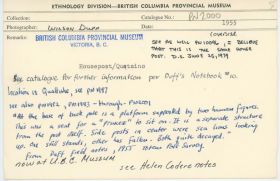 ETHNOLOGY DIVISION—BRITISH COLUMBIA PROVINCIAL MUSEUM
Catalogue No.: PN 7000
Photographer: WILSON DUFF 1955
BRITISH COLUMBIA PROVINCIAL MUSEUM
VICTORIA, B.C.
SEE AS WELL I BELIEVE
THAT THIS IS THE SAME HOUSE
POST. D.S. JUNE 25, 1979
Housepost/Quatsino
See catalogue for further information per Duff's Notebook
location is Quattishe, see PN
see also through
"At the base of back pole is a platform supported by two human figures.
This was a seat for a "Princess" to sit on. It is a separate structure
from the pole itself. Side posts in center were sea lions looking
up. One still stands, other has fallen. Both quite decayed."
From Duff field notes 1955 Totem Pole Survey
now at U.B.C. Museum
see Helen Codere notes